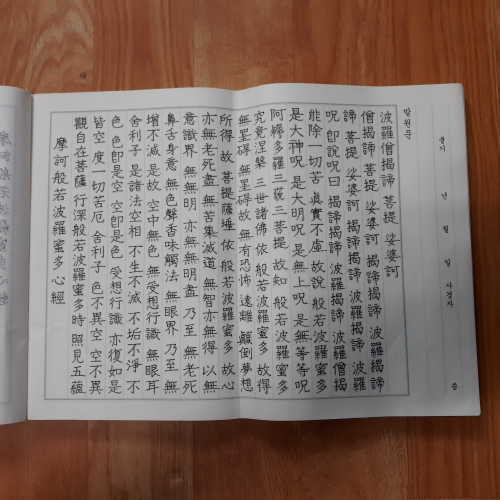 摩訶般若波羅蜜多心經
觀自在菩薩 行深般若波羅蜜多時 照見五蘊
皆空 度一切苦厄 舍利子 色不異空 空不異
色 色即是空 空即是色 受想行識 亦復如是
舍利子 是諸法空相 不生不滅 不垢不淨 不
增不減 是故 空中無色 無受想行識 無眼耳
鼻舌身意 無色聲香味觸法 無眼界 乃至 無
意識界 無無明 亦無無明盡 乃至 無老死
亦無老死盡 無苦集滅道 無智亦無得 以無
所得 故 菩提薩埵 依 般若波羅蜜多 故心
無罣碍 無罣碍故 無有恐怖 遠離 顚倒夢想
究竟涅槃 三世諸佛 依 般若波羅蜜多 故得
阿耨多羅三藐三菩提 故知 般若波羅蜜多
是大神呪 是大明呪 是無上呪 是無等等呪
能除一切苦 眞實不虛 故說 般若波羅蜜多
呪 卽說呪曰 揭諦揭諦 波羅揭諦 波羅僧揭
諦 菩提 娑婆訶 揭諦揭諦 波羅揭諦 波羅
僧揭諦 菩提 娑婆訶 揭諦揭諦 波羅揭諦
波羅僧揭諦 菩提 娑婆訶
발원문
불기 년 월 일 사경자